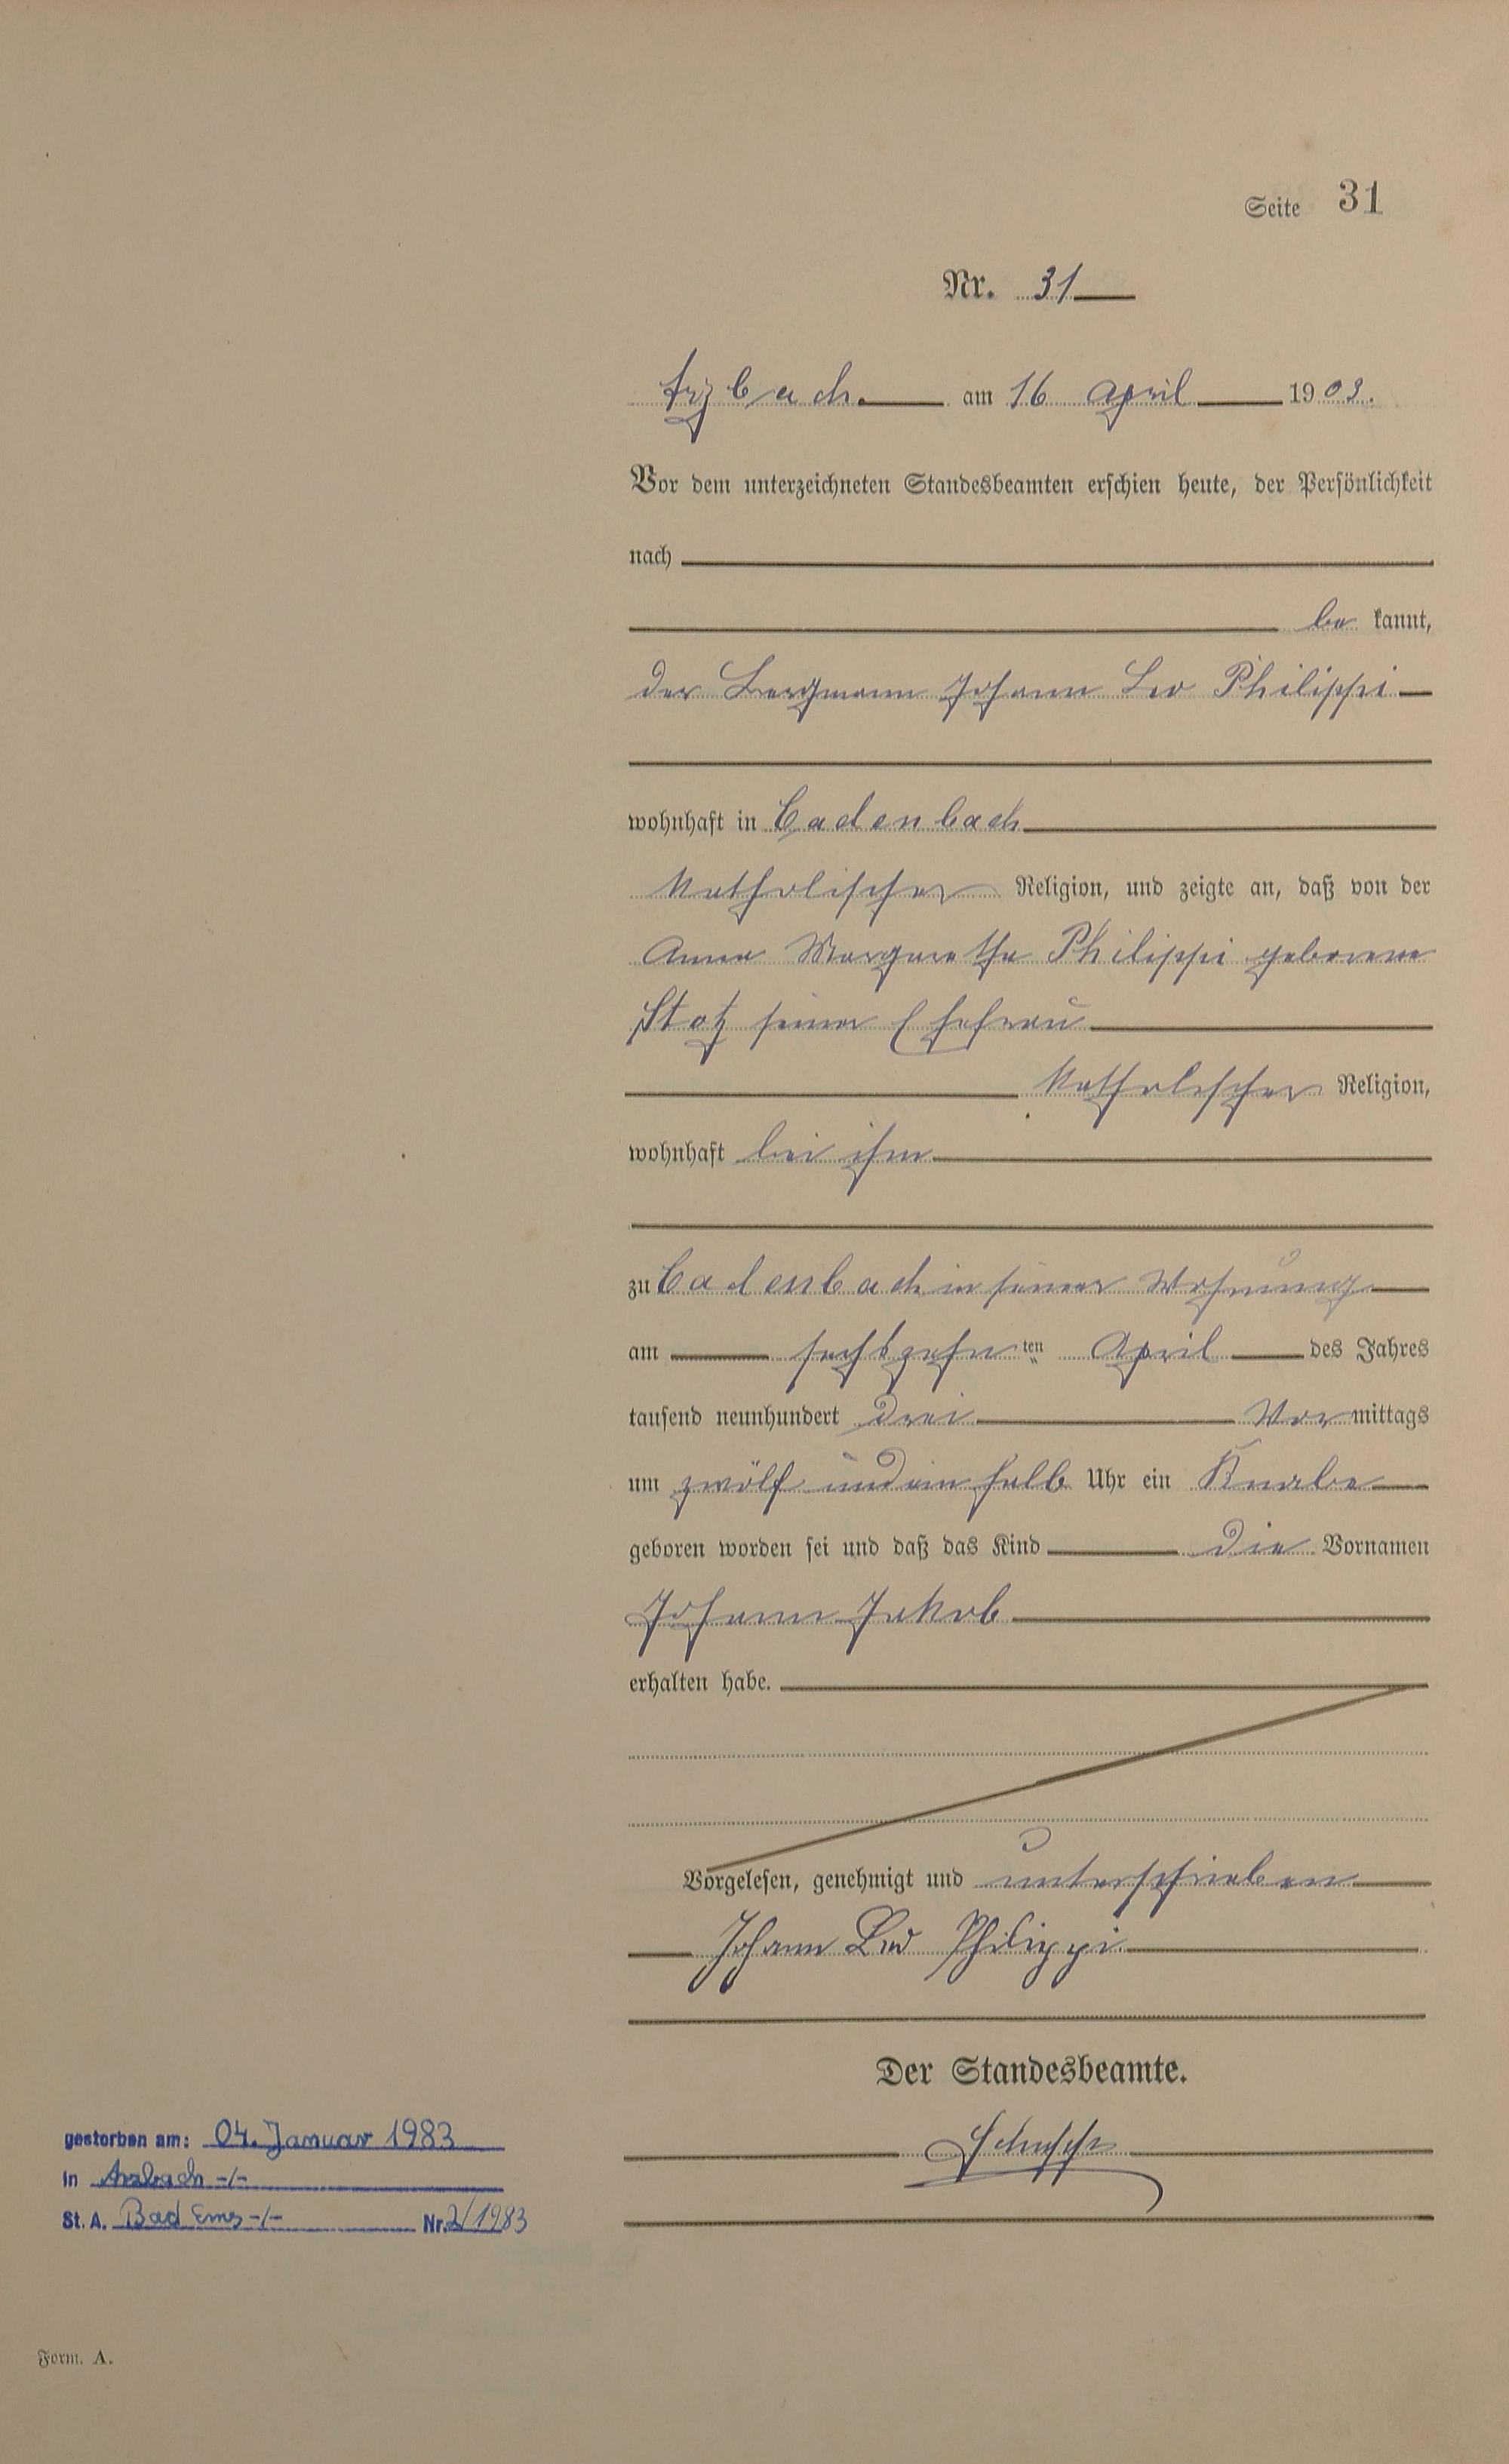 Seite 31
Nr. 31
Arzbach am 16 April 1903.
Vor dem unterzeichneten Standesbeamten erschien heute, der Persönlichkeit
nach
be kannt,
der Bergmann Johann Leo Philippi
wohnhaft in Cadenbach
katholischer Religion, und zeigte an, daß von der
Anna Margaretha Philippi geborene
Stotz seiner Ehefrau
katholischer Religion,
wohnhaft bei ihm
zu Cadenbach in seiner Wohnung
am sechszehn ten April des Jahres
tausend neunhundert drei Vor mittags
um zwölf und ein halb Uhr ein Knabe
geboren worden sei und daß das Kind die Vornamen
Johann Jakob
erhalten habe.
Vorgelesen, genehmigt und unterschrieben
Johann Leo Philippi
Der Standesbeamte.
gestorben am: 04. Januar 1983
in Arzbach -/-
St. A. Bad Ems -/- Nr. 2/1983
Form. A.